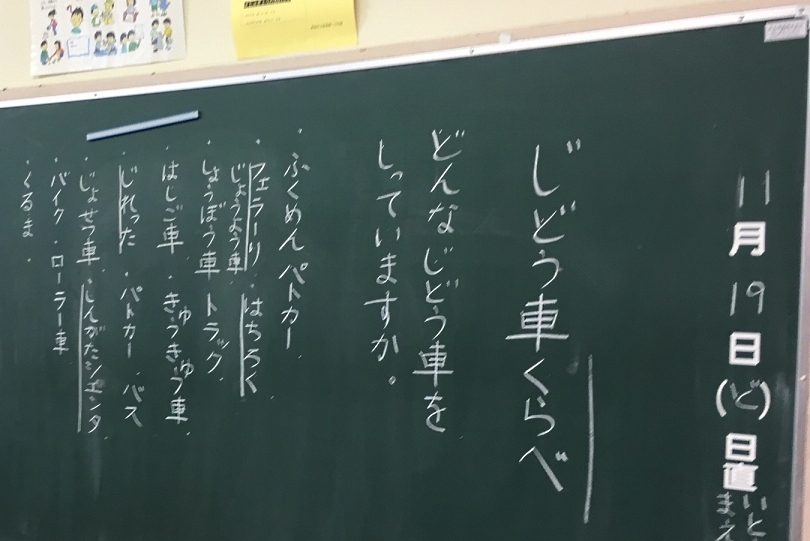 11月19日(ど)日直
じどう車くらべ
どんなじどう車を
しっていますか。
・ふくめんパトカー
・フェラーリ・はちろく
じょうよう車
・しょうぼう車 トラック
はしご車・きゅうきゅう車
・じれった・パトカー・バス
・じょせつ車・しんがたシエンタ
・バイク・ローラー車
・くるま・